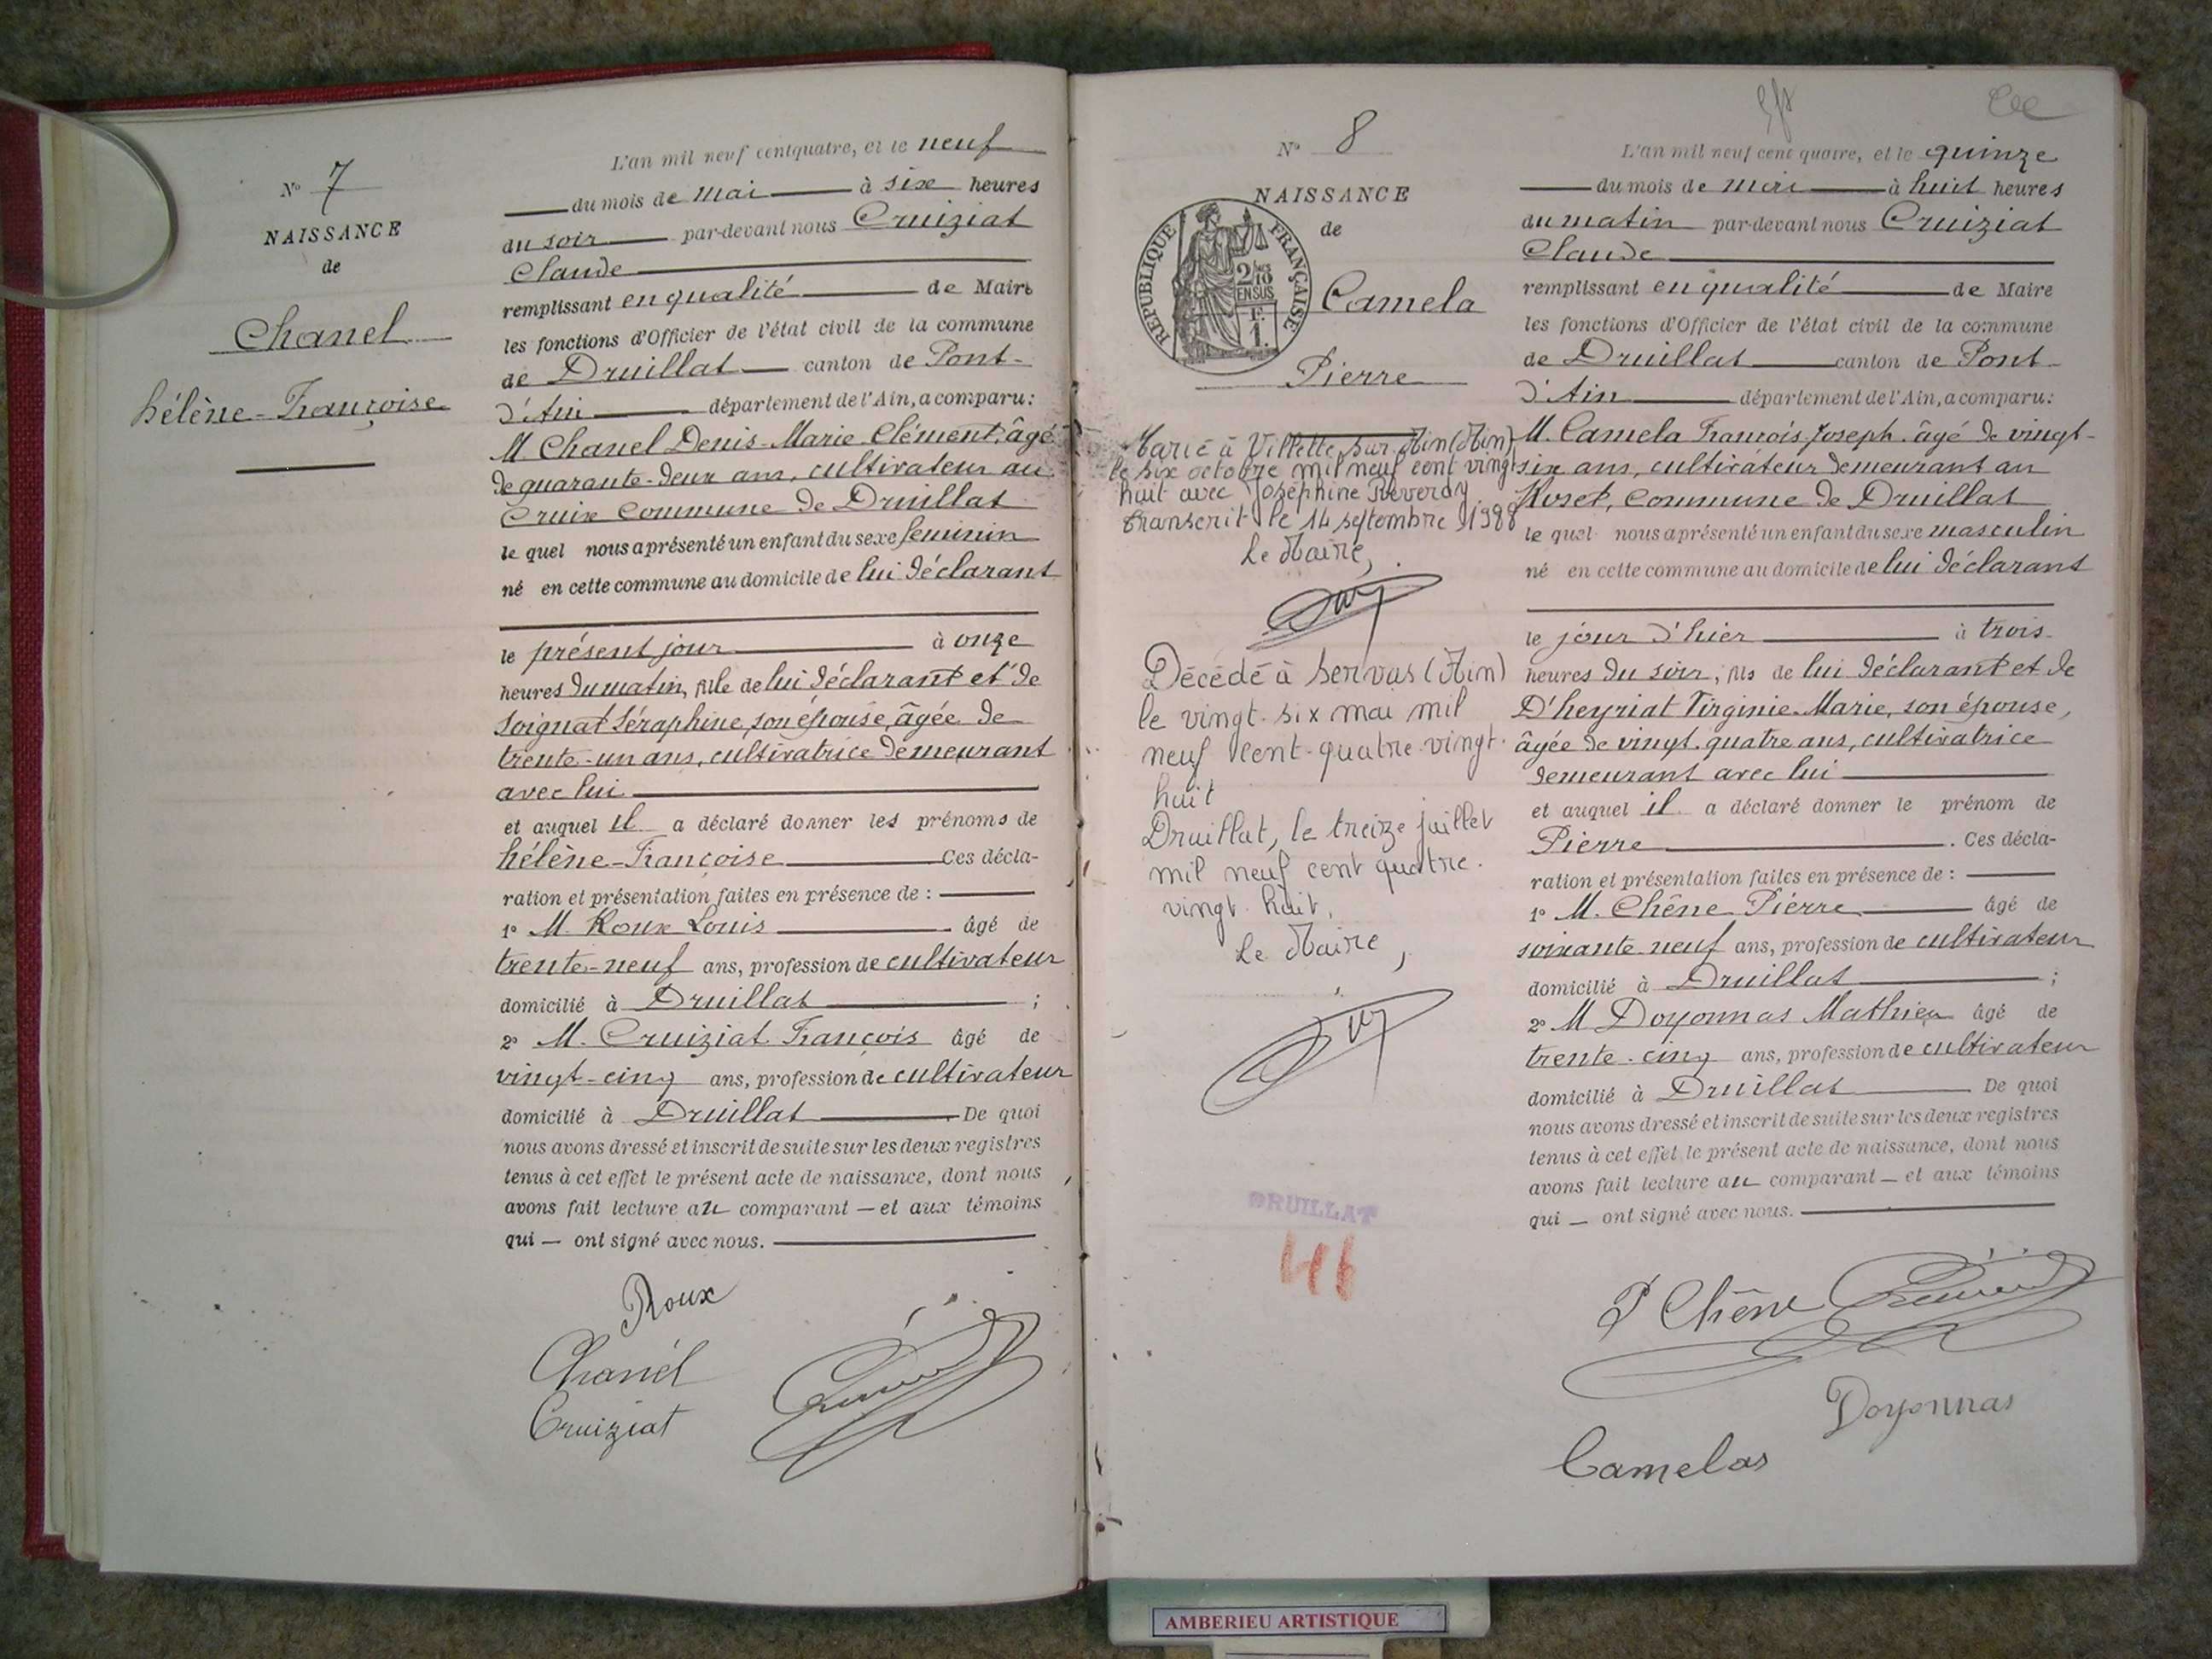 N° 7
NAISSANCE
de
Chanel
hélène-Françoise
L'an mil neuf centquatre, et le neuf
du mois de mai à six heures
du soir par-devant nous Cruiziat
Claude
remplissant en qualité de Maire
les fonctions d'Officier de l'état civil de la commune
de Druillat canton de Pont-
d'Ain département de l'Ain, a comparu:
M. Chanel Denis-Marie-Clément, âgé
de quarante-deux ans, cultivateur au
Cruix commune de Druillat
le quel nous a présenté un enfant du sexe feminin
né en cette commune au domicile de lui déclarant
le présent jour à onze
heures du matin, fille de lui déclarant et de
Soignat Séraphine, son épouse, âgée de
trente-un ans, cultivatrice demeurant
avec lui
et auquel il a déclaré donner les prénoms de
hélène-Françoise Ces décla-
ration et présentation faites en présence de :
1° M. Roux Louis âgé de
trente-neuf ans, profession de cultivateur
domicilié à Druillat ;
2° M. Cruiziat François âgé de
vingt-cinq ans, profession de cultivateur
domicilié à Druillat. De quoi
nous avons dressé et inscrit de suite sur les deux registres
tenus à cet effet le présent acte de naissance, dont nous
avons fait lecture au comparant — et aux témoins
qui — ont signé avec nous.
Roux
Chanel
Cruiziat
N° 8
NAISSANCE
de
REPUBLIQUE FRANÇAISE
2/10 EN SUS
1 F.
Camela
Pierre
Marié à Villette sur Ain (Ain)
le six octobre mil neuf cent vingt
huit avec Joséphine Réveray
transcrit le 14 septembre 1988
Le Maire,
Décédé à Servas (Ain)
le vingt-six mai mil
neuf cent-quatre-vingt-
huit
Druillat, le treize juillet
mil neuf cent quatre-
vingt-huit,
Le Maire,
DRUILLAT
46
L'an mil neuf cent quatre, et le quinze
du mois de mai à huit heures
du matin par-devant nous Cruiziat
Claude
remplissant en qualité de Maire
les fonctions d'Officier de l'état civil de la commune
de Druillat canton de Pont-
d'Ain département de l'Ain, a comparu:
M. Camela François Joseph. âgé de vingt-
six ans, cultivateur demeurant au
Roset, commune de Druillat
le quel nous a présenté un enfant du sexe masculin
né en cette commune au domicile de lui déclarant
le jour d'hier à trois
heures du soir, fils de lui déclarant et de
D'heyriat Virginie-Marie, son épouse,
âgée de vingt-quatre ans, cultivatrice
demeurant avec lui
et auquel il a déclaré donner le prénom de
Pierre. Ces décla-
ration et présentation faites en présence de :
1° M. Chêne Pierre âgé de
soixante-neuf ans, profession de cultivateur
domicilié à Druillat ;
2° M Doyonnas Mathieu âgé de
trente-cinq ans, profession de cultivateur
domicilié à Druillat De quoi
nous avons dressé et inscrit de suite sur les deux registres
tenus à cet effet le présent acte de naissance, dont nous
avons fait lecture au comparant — et aux témoins
qui — ont signé avec nous.
P Chêne
Doyonnas
Camelas
AMBERIEU ARTISTIQUE